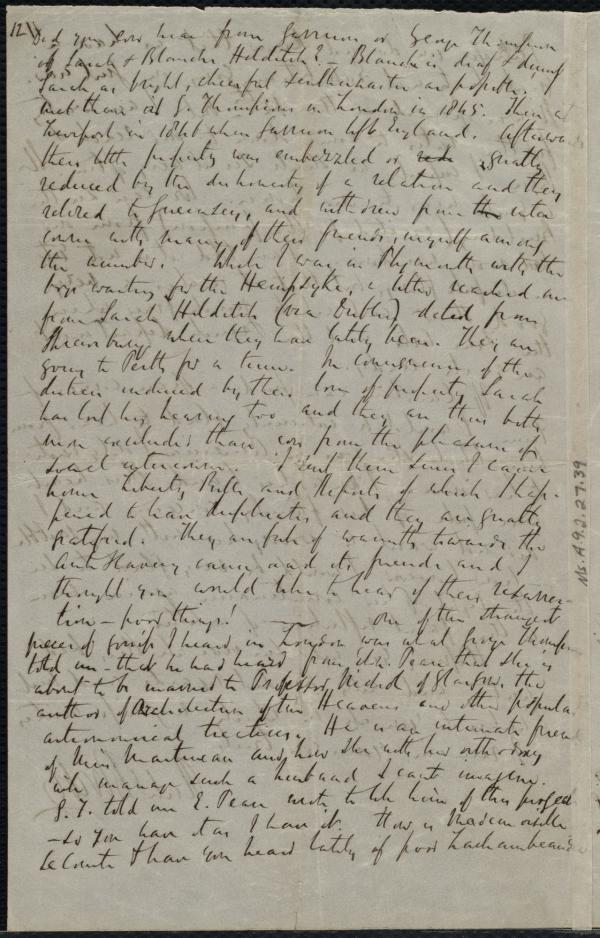 12
Did you ever hear from Garrison or George Thompson
of Sarah & Blanche Hilditch? – Blanche is deaf & dumb
Sarah as bright, cheerful as possible. I
met them at G. Thompson's in London in 1845. Then at
Liverpool in 1846 when Garrison left England. Afterwards
their little property was embezzled or greatly
reduced by the dishonesty of a relation and they
retired to Guernsey, and withdrew from inter
course with many of their friends, myself among
the number. While I was in Plymouth with the
boys waiting for the Hempsyke, a letter reached me
from Sarah Hilditch (via Dublin) dated from
Shrewsbury where they have lately been. They are
going to Perth for a time. In consequence of the
induced by their loss of property Sarah
has lost her hearing too and they are thus both
more excluded than ever from the pleasure of
social intercourse. I sent them since I came
home Liberty Bells and Reports of which I hap-
pened to have duplicates and they are greatly
gratified. They are full of warmth towards the
Anti Slavery cause and its friends and I
thought you would like to hear of their resurrec-
tion – poor things! — One of the strangest
pieces of gossip I heard in London was what George Thompson
told me – that he had heard from Eliz. Pease that she is
about to be married to Professor Nichol of Glasgow, the
author of Architecture of the Heavens and other popular
astronomical treatises. He is an intimate friend
of Miss Martineau and how she with her orthodoxy
will manage such a husband I can't imagine.
G. T. told me E. Pease wrote to tell him of this project
– so you have it as I have it. How is Mademoiselle
LeComte & have you heard lately of poor Lachambeaudie
Ms. A.9.2.27.39